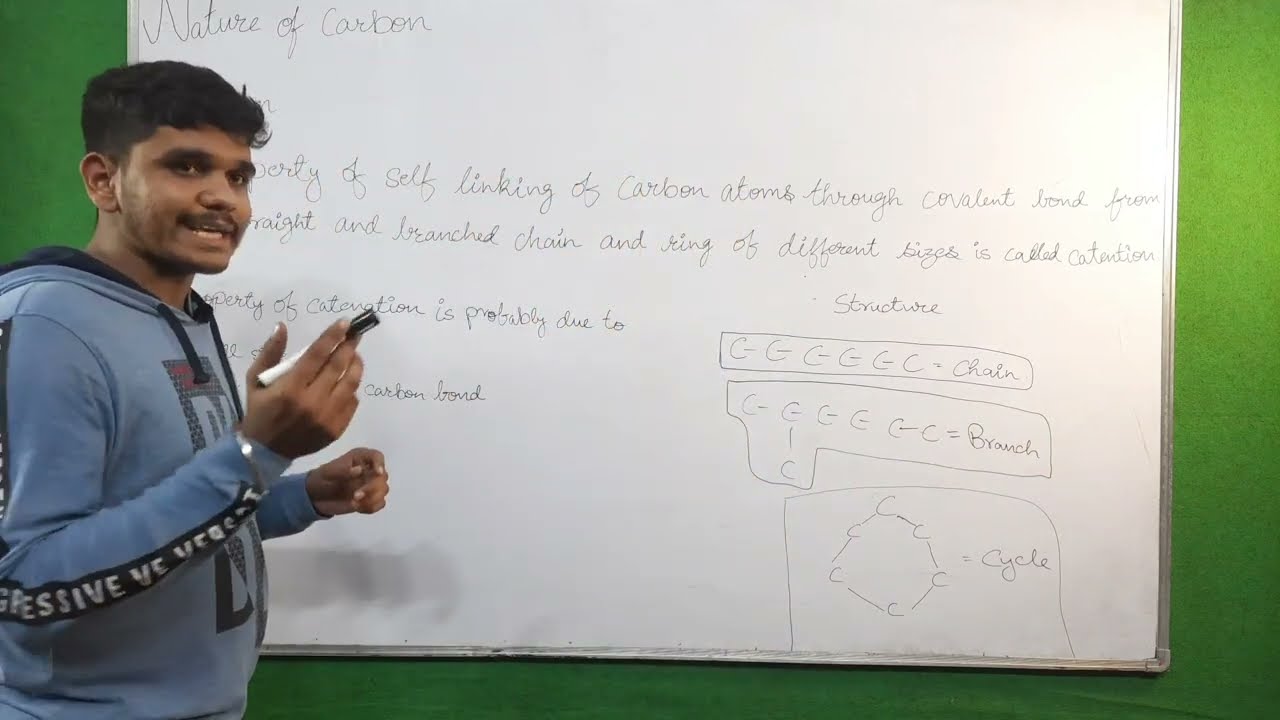 Nature of Carbon
perty of self linking of carbon atoms through covalent bond from
raight and branched chain and ring of different sizes is called catention
operty of catenation is probably due to
carbon bond
Structure
C- C- C- C- C- C = Chain
C- C- C- C- C-C = Branch
|
C
C
C C
C C
C
= Cycle
GRESSIVE VE VERSAT